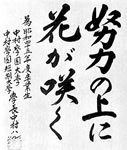 努力の上に
花が咲く
為昭和四十五年度卒業生
中村学園大学
中村学園短期大学学長中村ハル